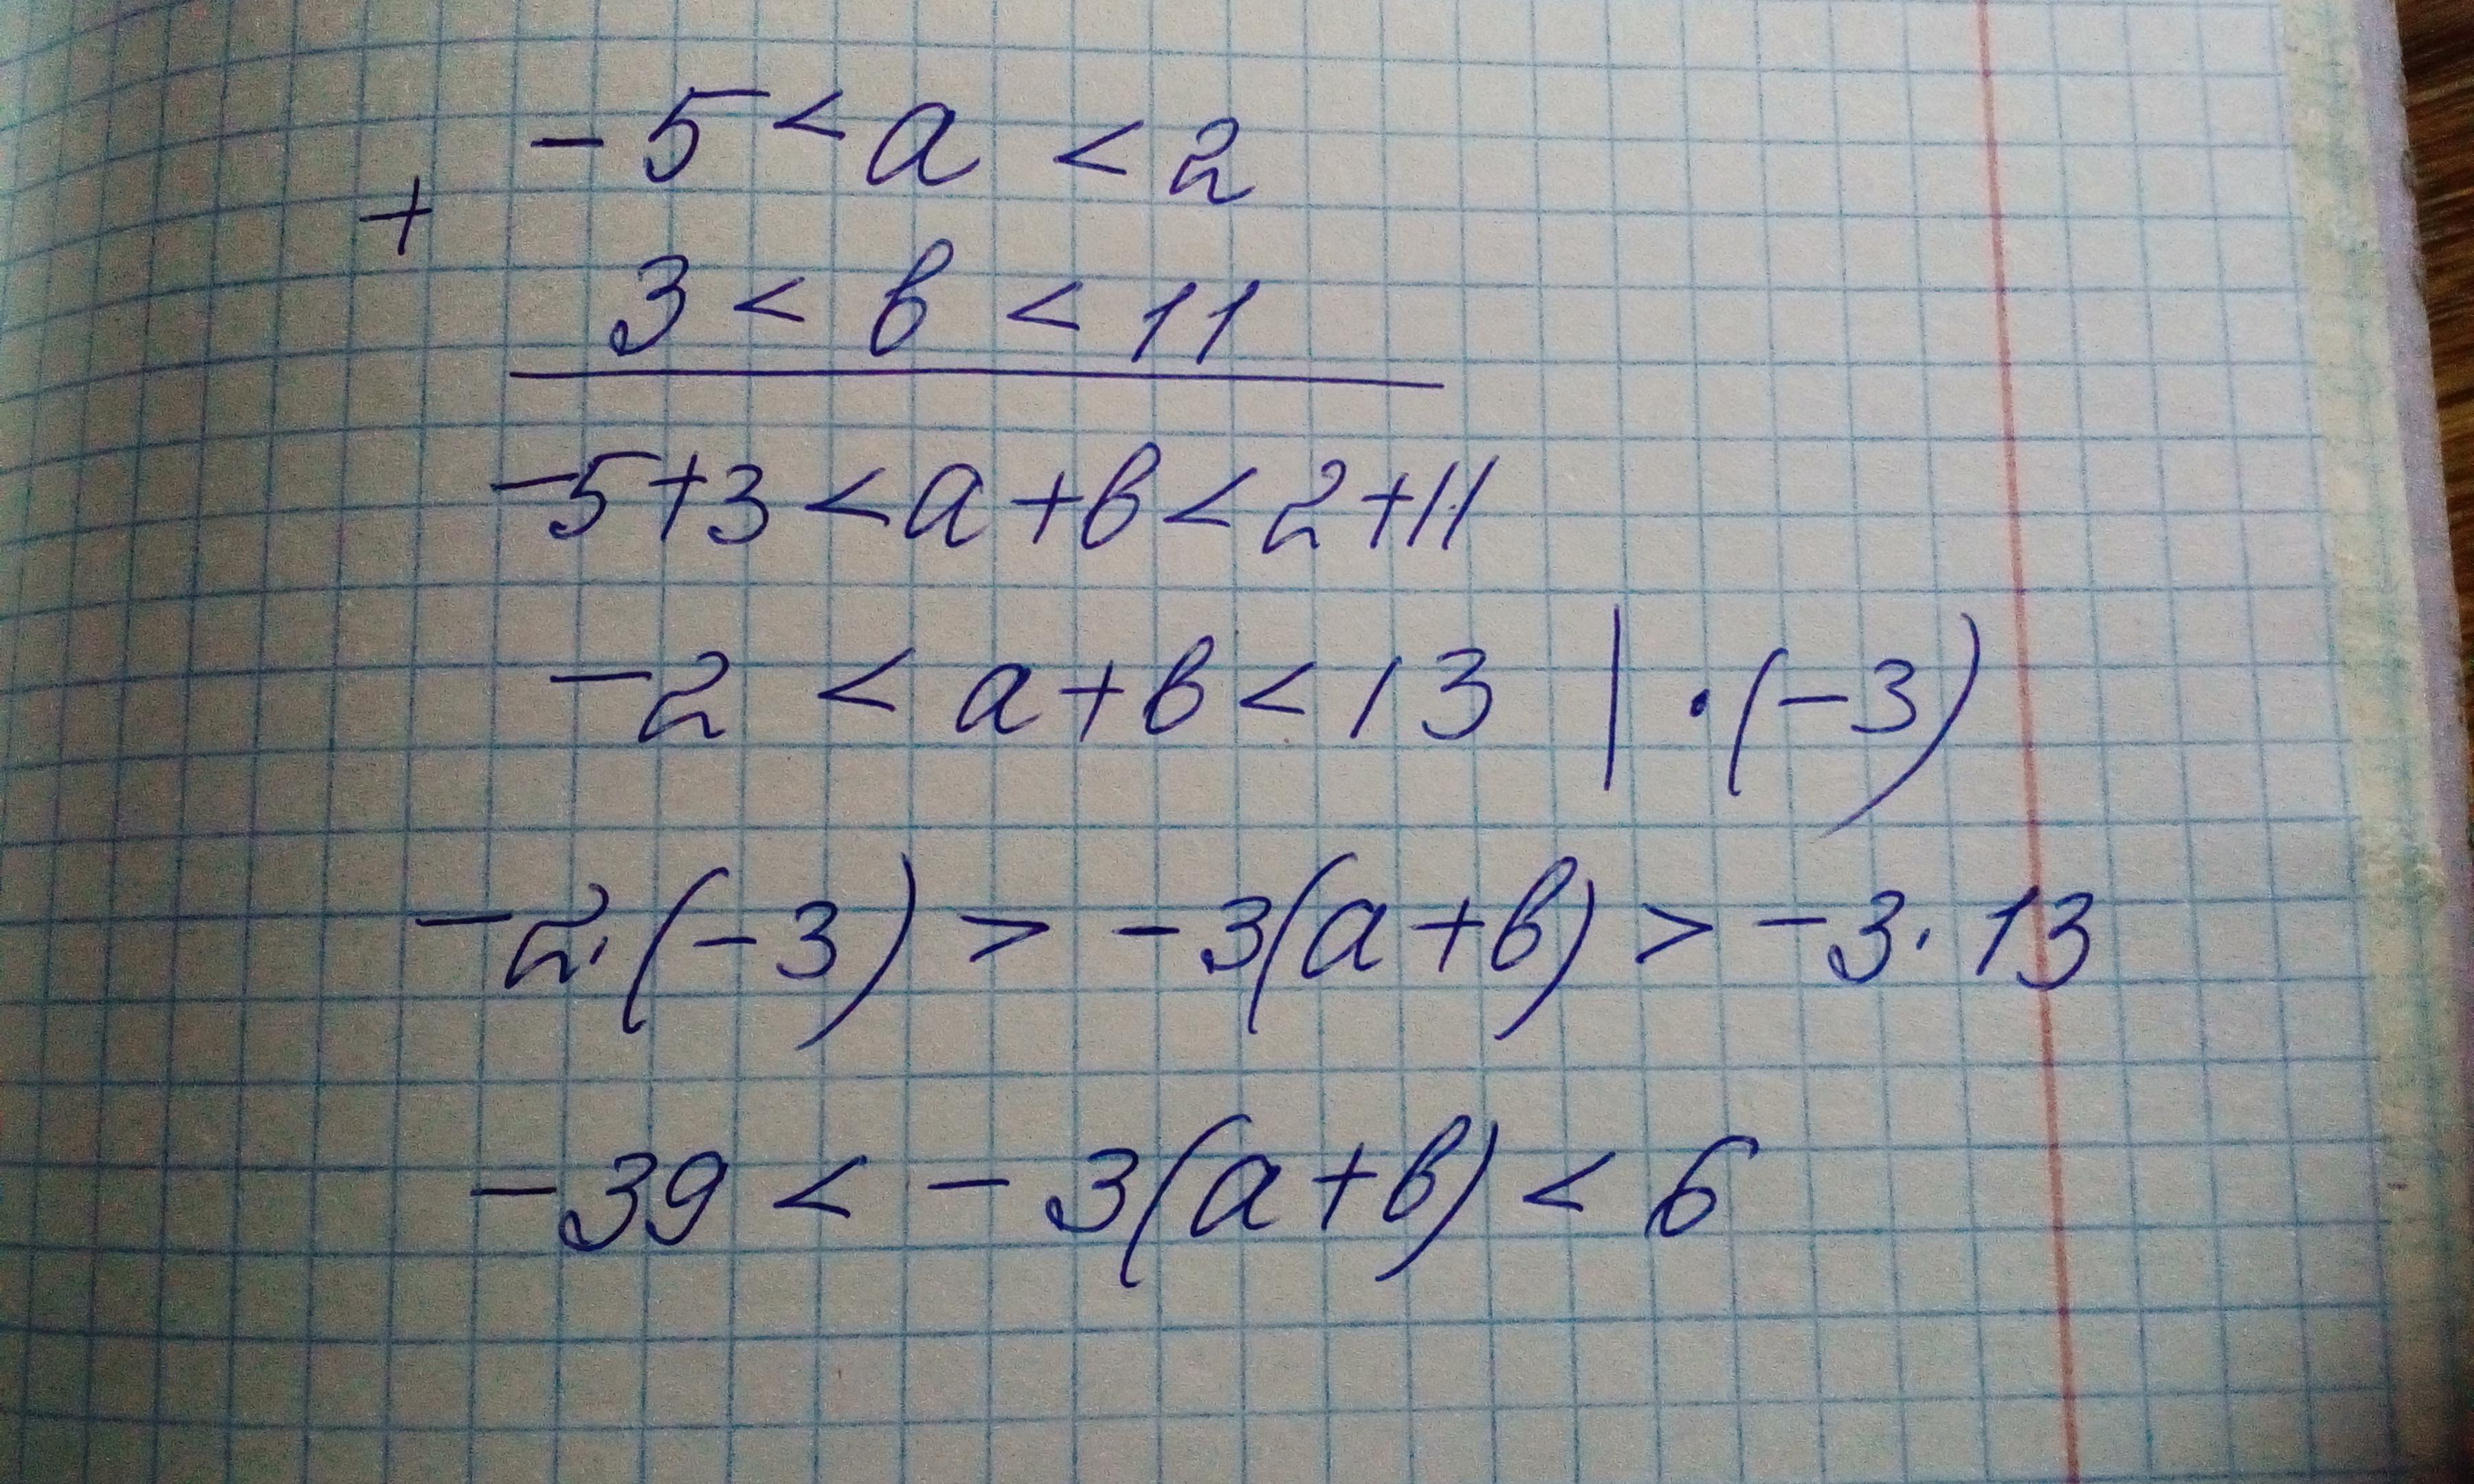 -5 < a < 2
+
3 < в < 11
-5+3 < a+в < 2+11
-2 < a+в < 13 | ·(-3)
-2·(-3) > -3(a+в) > -3·13
-39 < -3(a+в) < 6